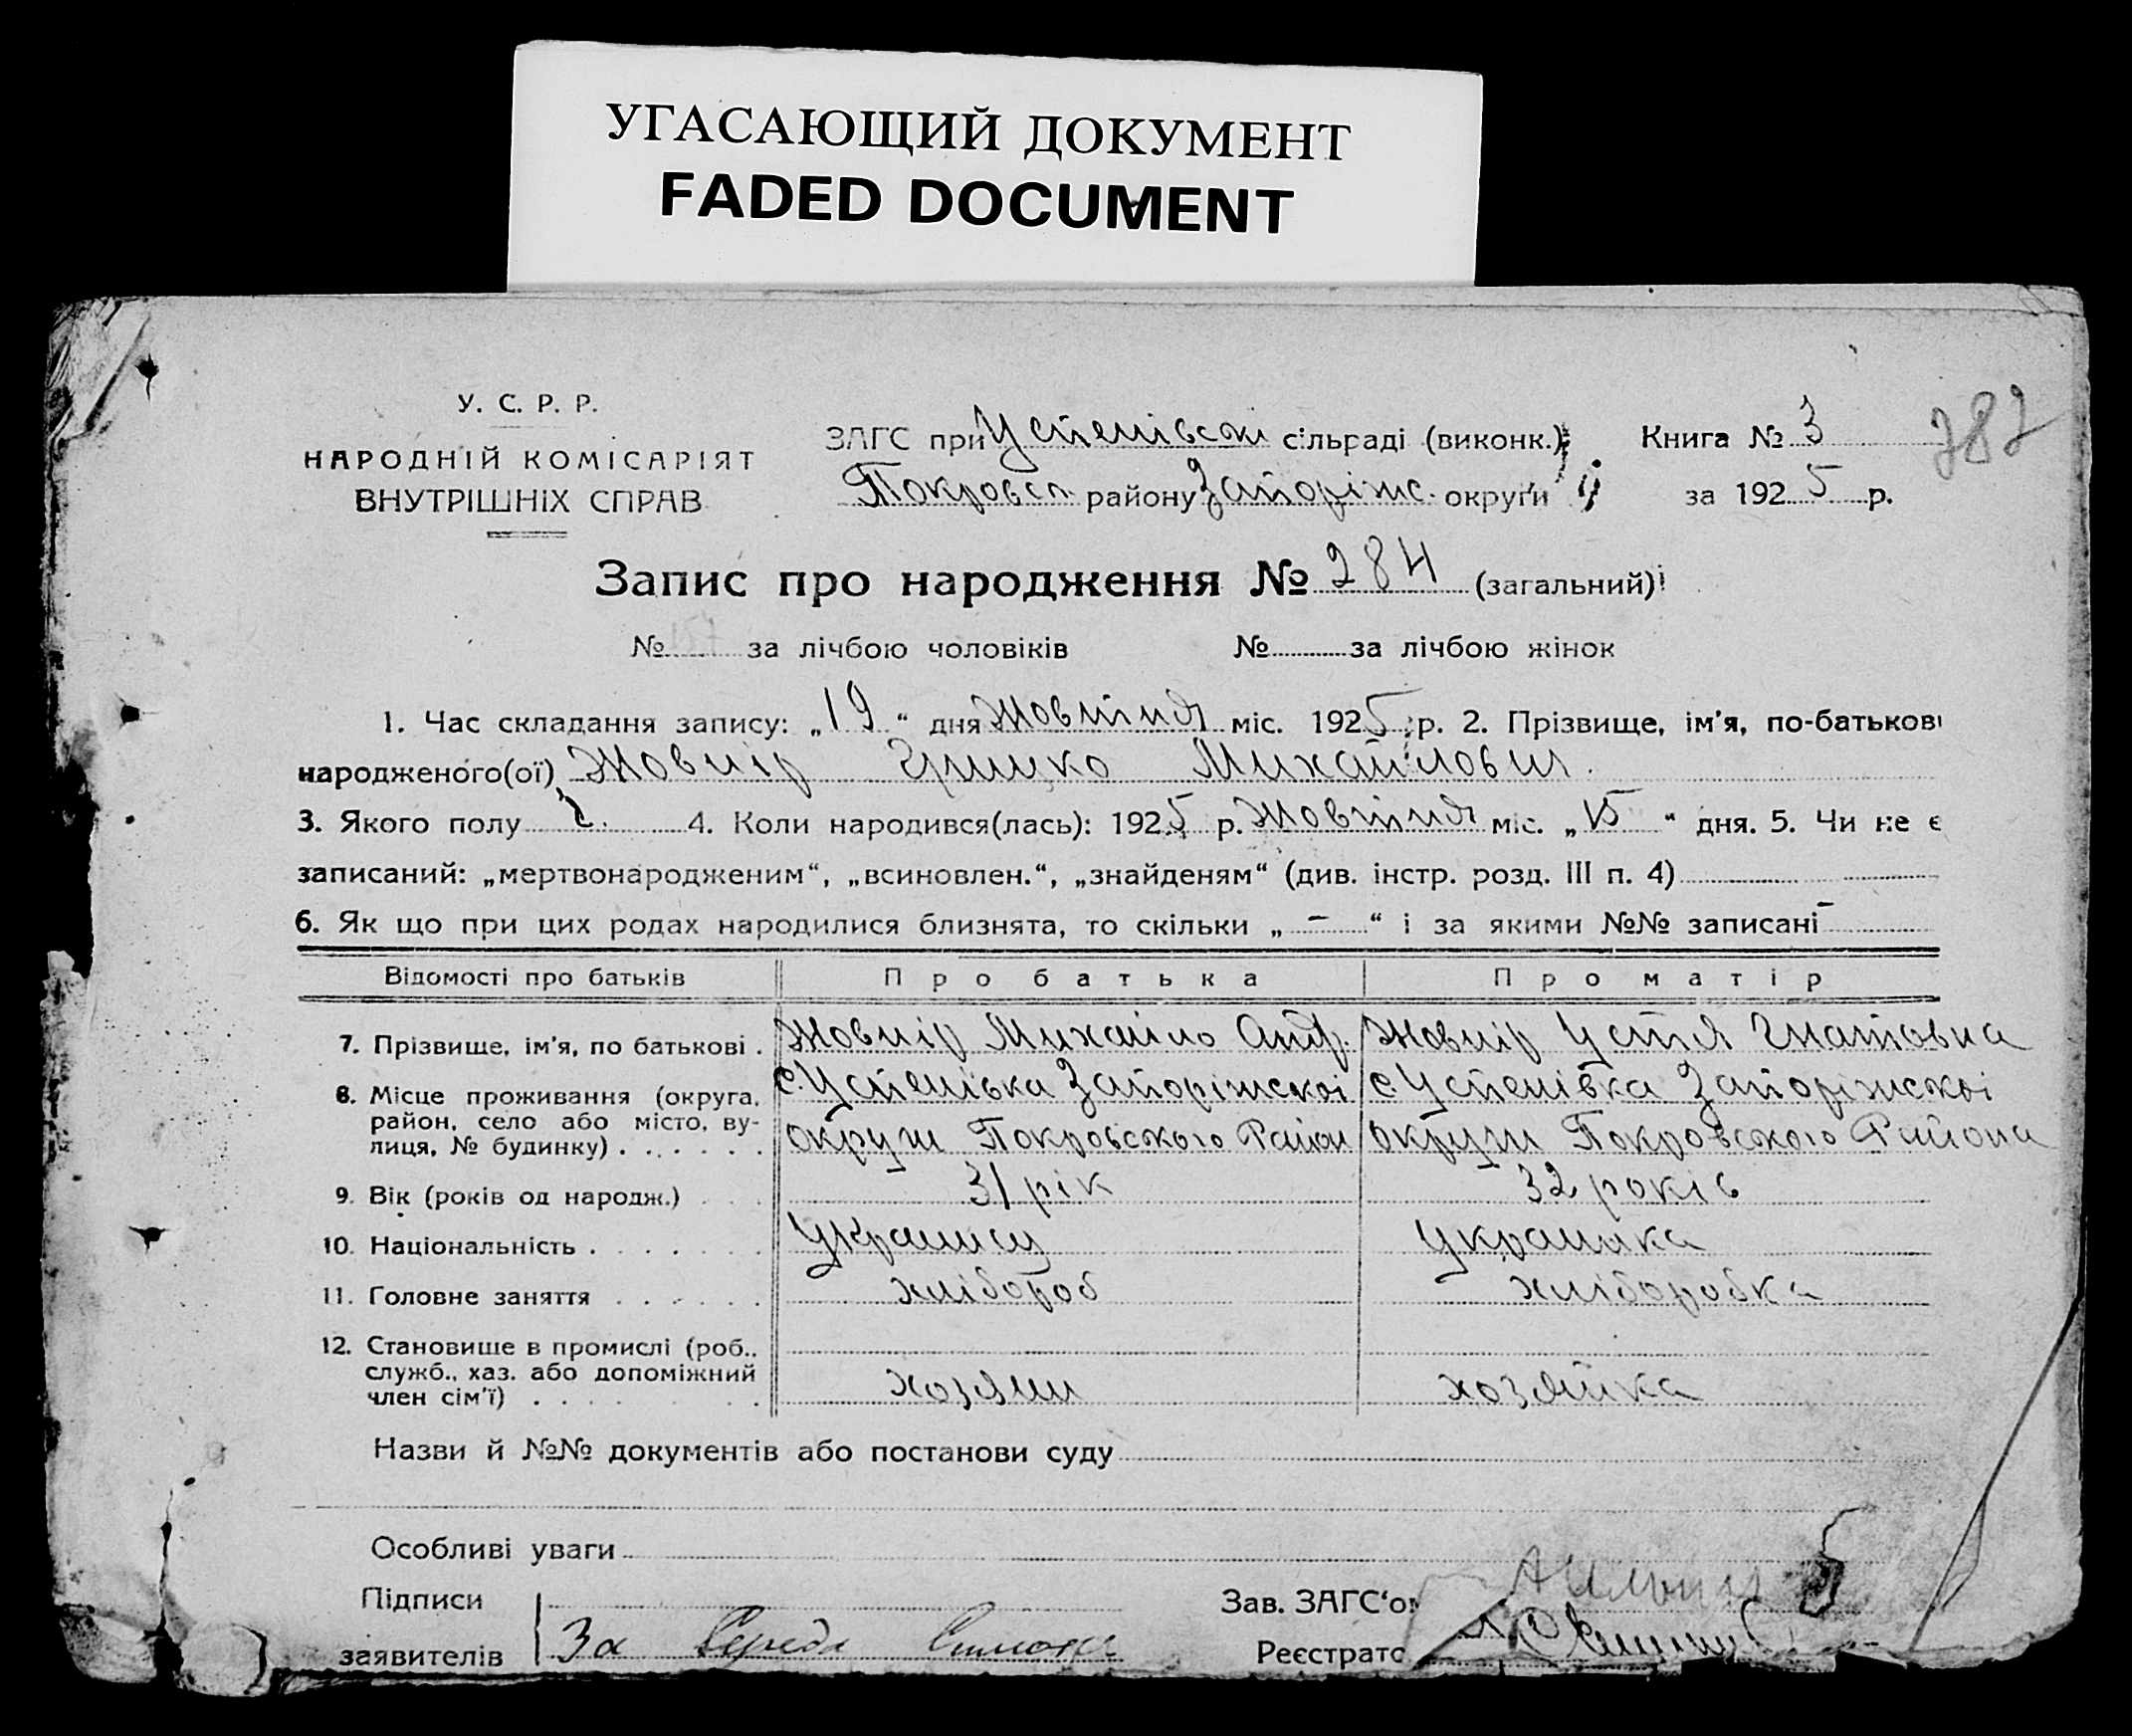 УГАСАЮЩИЙ ДОКУМЕНТ
FADED DOCUMENT
У. С. Р. Р.
НАРОДНІЙ КОМІСАРІЯТ
ВНУТРІШНІХ СПРАВ
ЗАГС при Успенівскі сільраді (виконк.)
Покровсп. району Запоріжс. округи
Книга № 3
за 1925 р.
282
Запис про народження № 284 (загальний)
№ за лічбою чоловіків № за лічбою жінок
1. Час складання запису: „19“ дня Жовтня міс. 1925 р. 2. Прізвище, ім'я, по-батькові
народженого(ої) Жовнір Грицко Михайлович.
3. Якого полу ч. 4. Коли народився(лась): 1925 р. Жовтня міс. „15“ дня. 5. Чи не є
записаний: „мертвонародженим“, „всиновлен.“, „знайденям“ (див. інстр. розд. III п. 4)
6. Як що при цих родах народилися близнята, то скільки „ – “ і за якими №№ записані –
Відомості про батьків Про батька Про матір
7. Прізвище, ім'я, по батькові . Жовнір Михайло Андр. Жовнір Устя Гнатовна
8. Місце проживання (округа, с. Успенівка Запоріжскоі с. Успенівка Запоріжскоі
район, село або місто, ву-
лиця, № будинку) . . . . . . округи Покровского Район округи Покровского Района
9. Вік (років од народж.) . . . 31 рік 32 років
10. Національність . . . . . . . Украинец Украинка
11. Головне заняття . . . . . . хлібороб хліборобка
12. Становище в промислі (роб.,
служб., хаз. або допоміжний
член сім'ї) . . . . . . . . хозяин хозяйка
Назви й №№ документів або постанови суду
Особливі уваги
Підписи Зав. ЗАГС'ом
заявителів За Середа Реєстрато